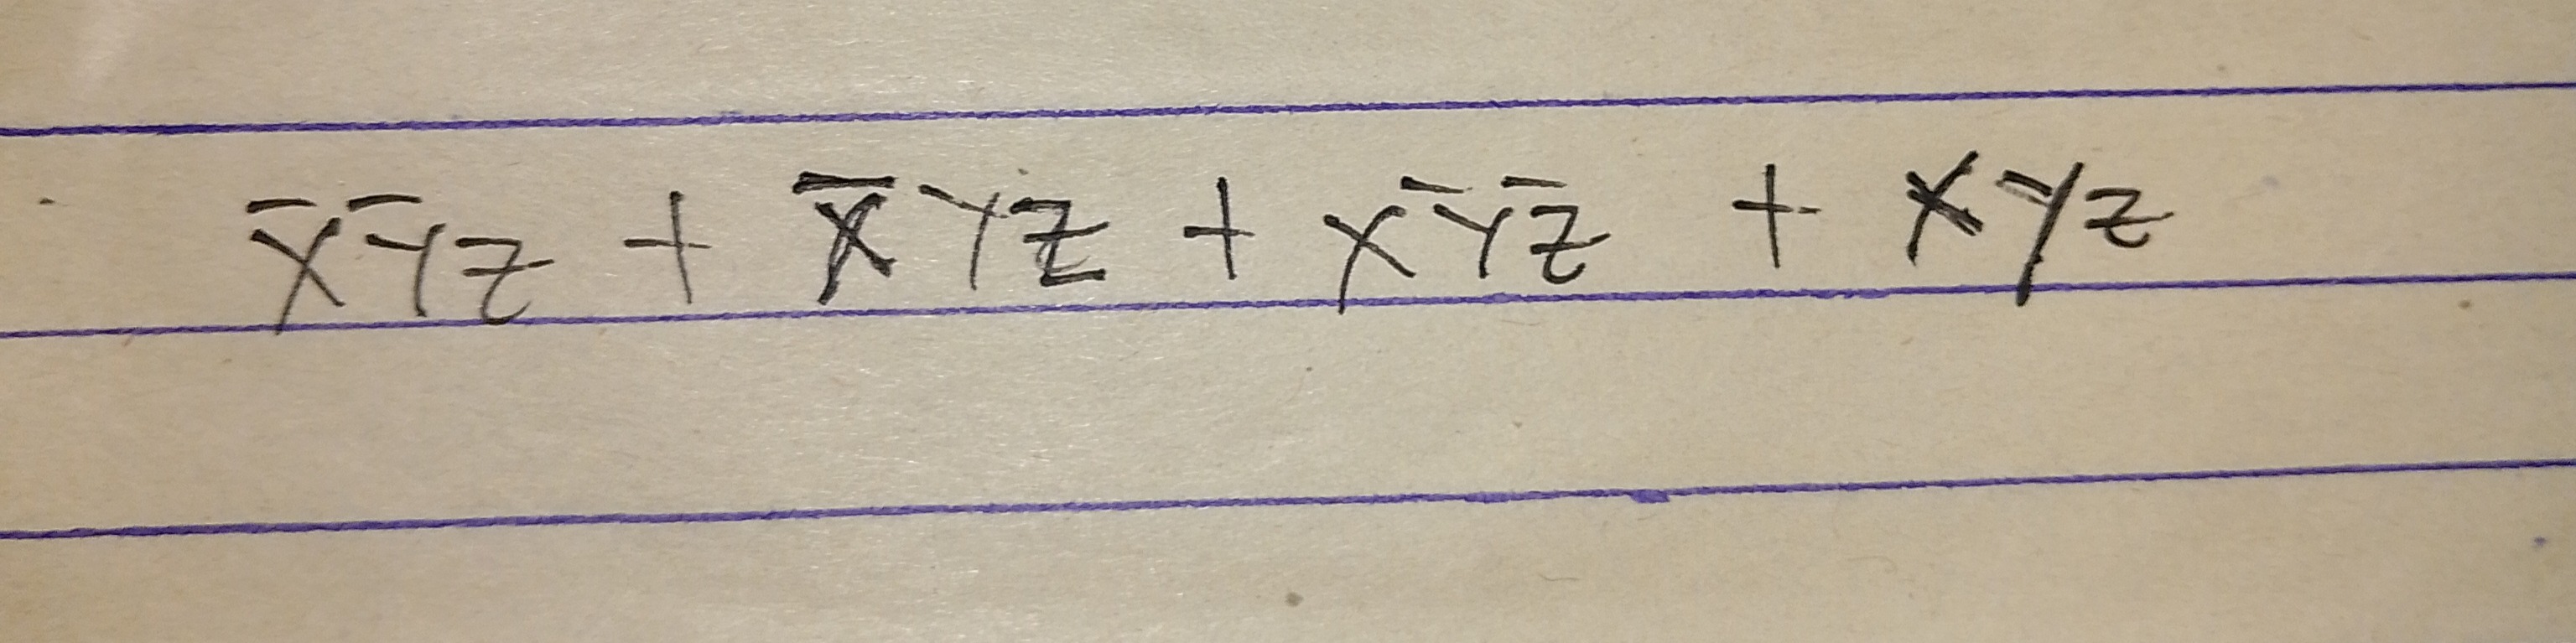 X̅Y̅Z + X̅YZ + XY̅Z̅ + XYZ